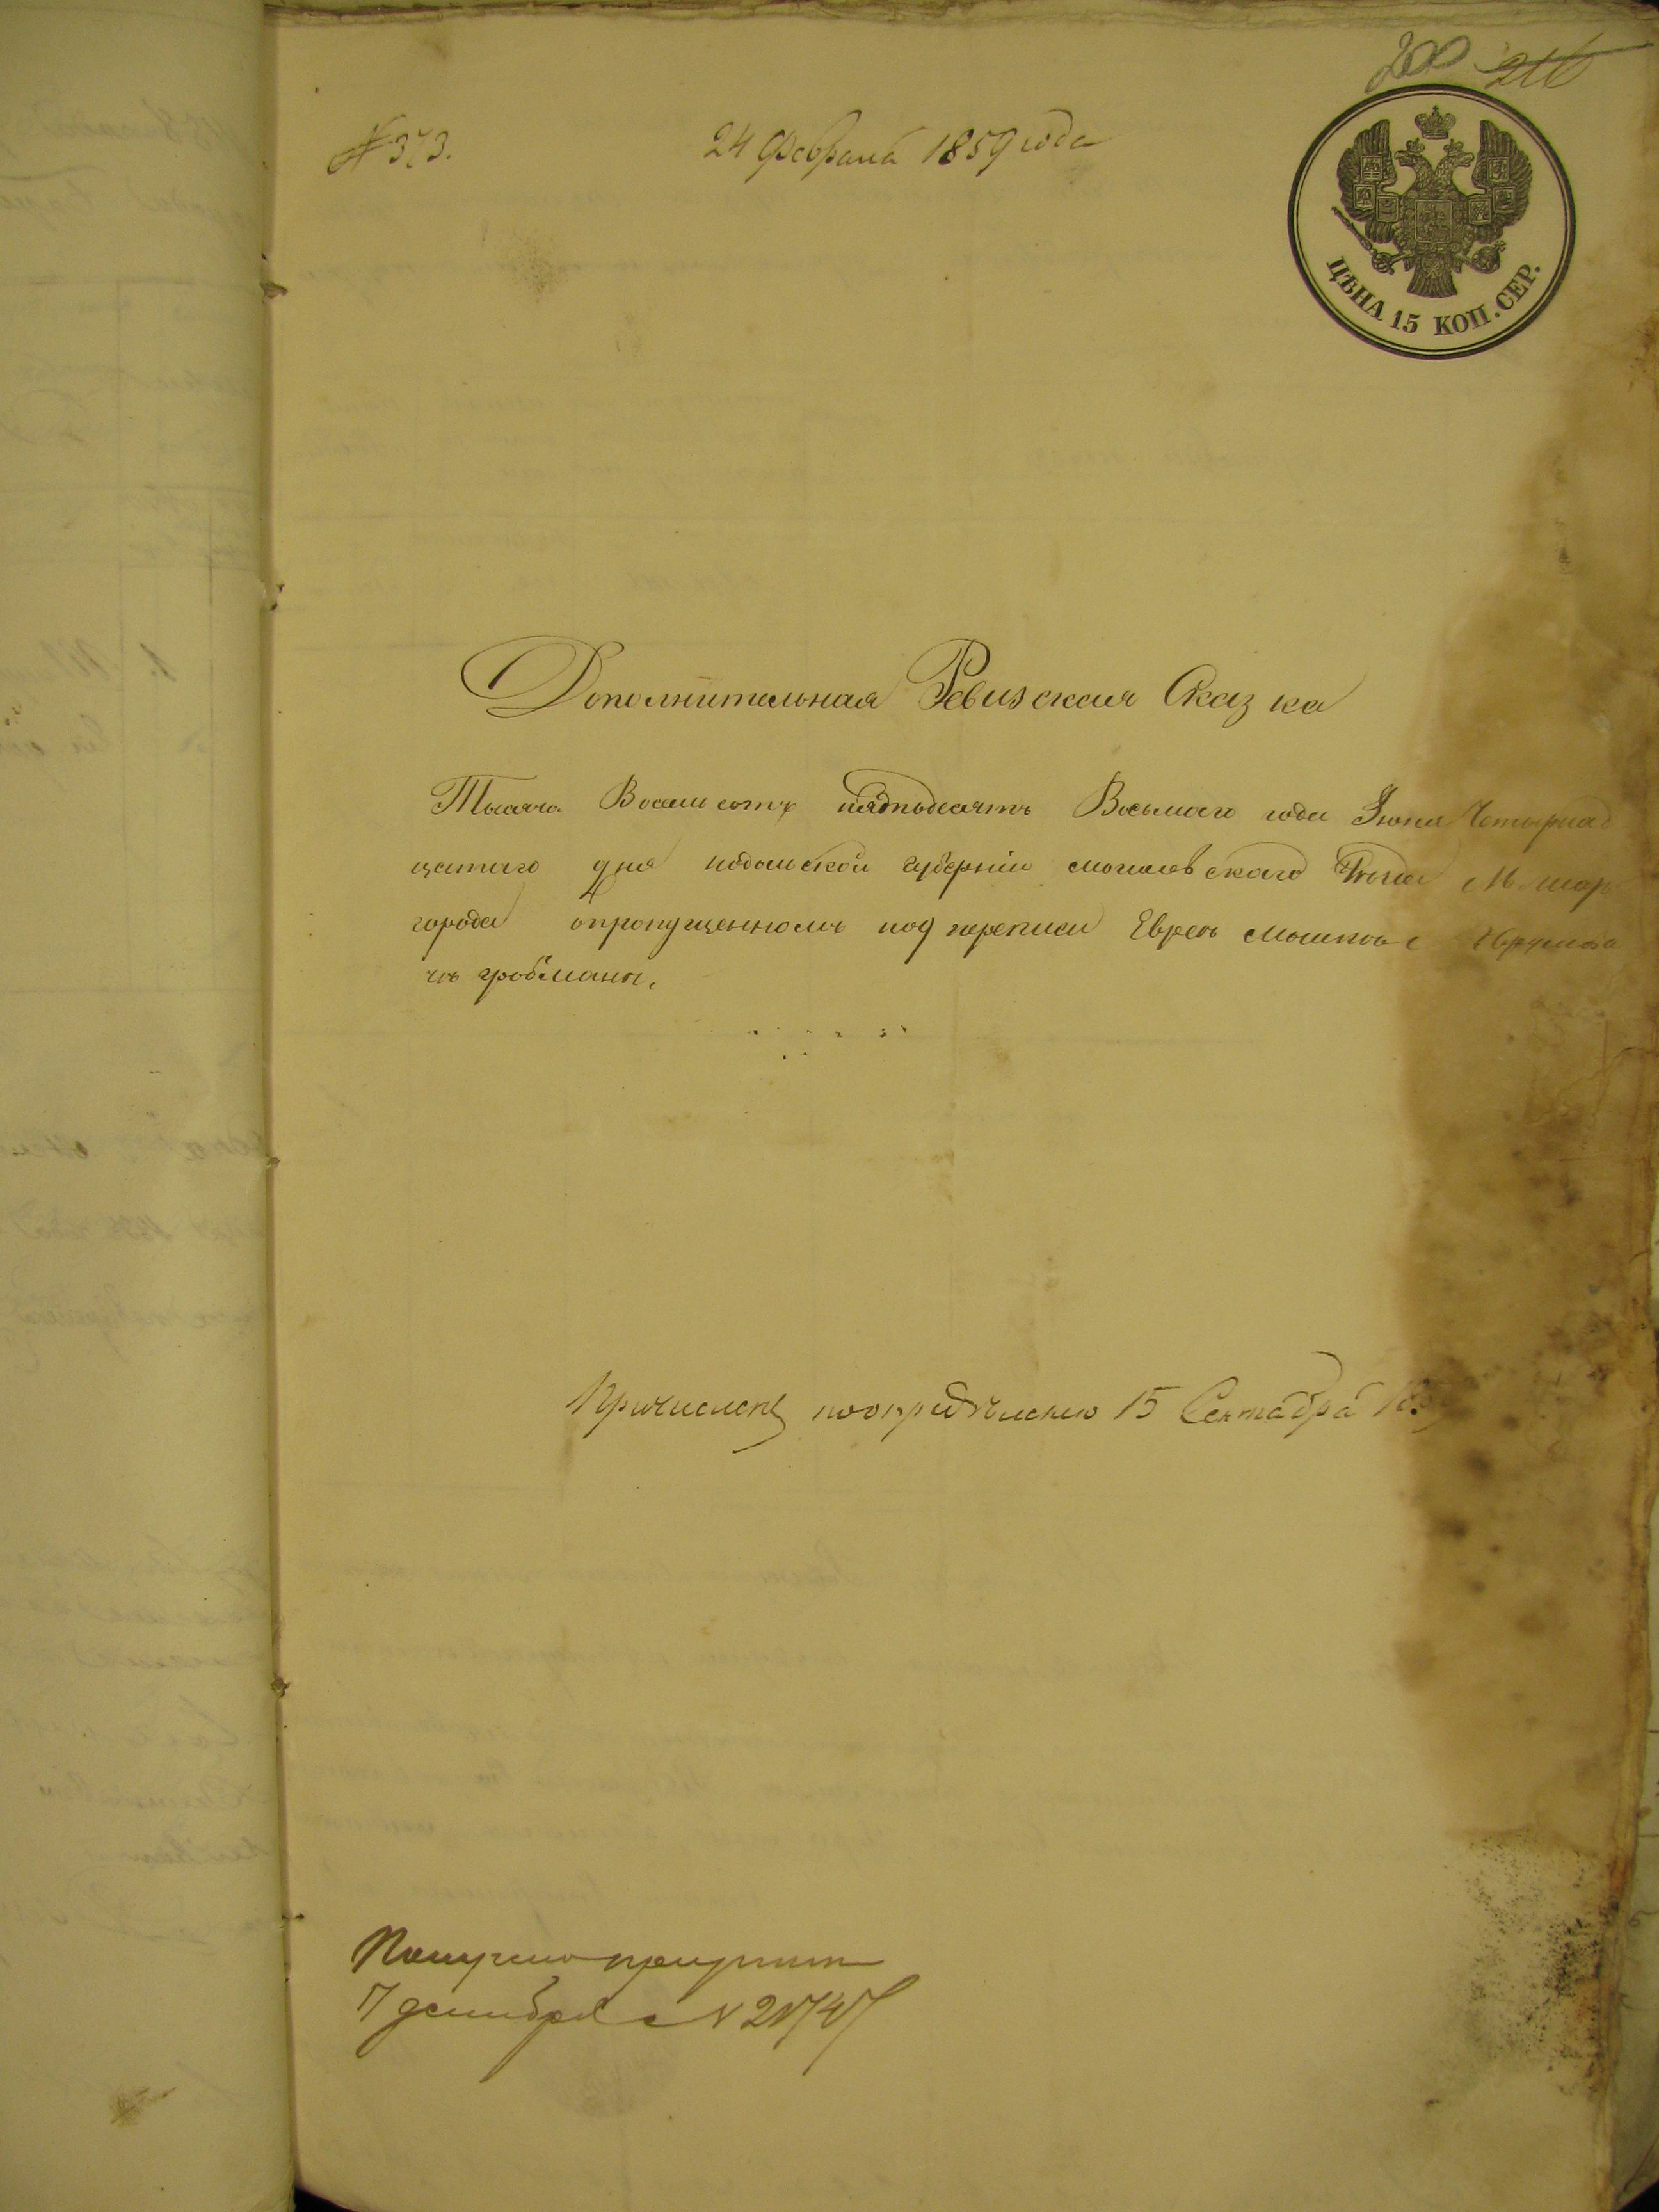 200 216
№ 373. 24 Февраля 1859 года
ЦѢНА 15 КОП. СЕР.
Дополнительная Ревизская Сказка
Тысяча Восемьсотъ пядьподесятъ Восьмаго года Iюня Четырнад
цатаго дня подольской губернiи могилевскаго уезда М. шар
города опропущенномъ под переписи Еврею мошков
чъ гробманъ.
Причисленъ поопредѣленiю 15 Сентабра 185
декабря N 21747